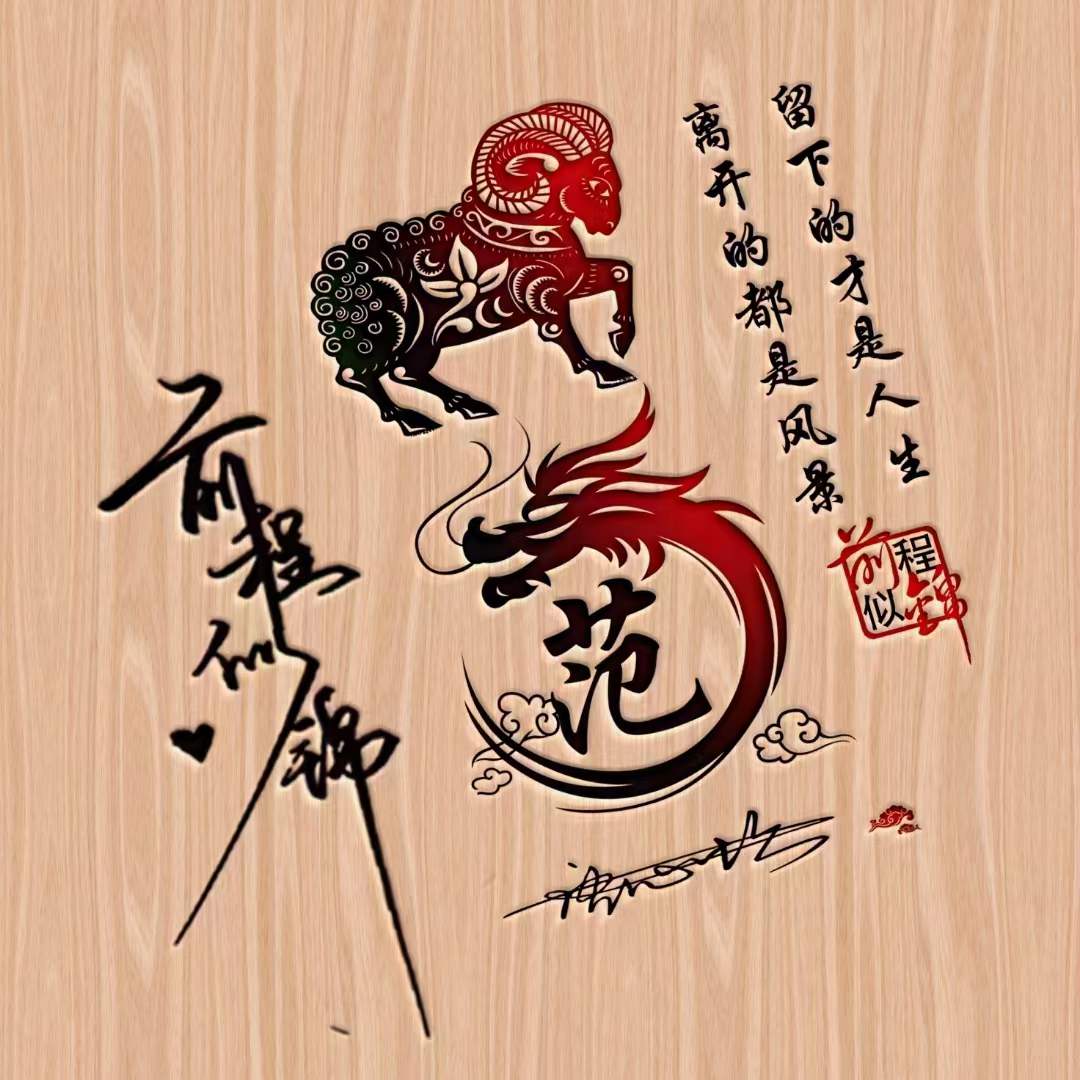 留下的才是人生
离开的都是风景
前程似锦
前程似锦
范